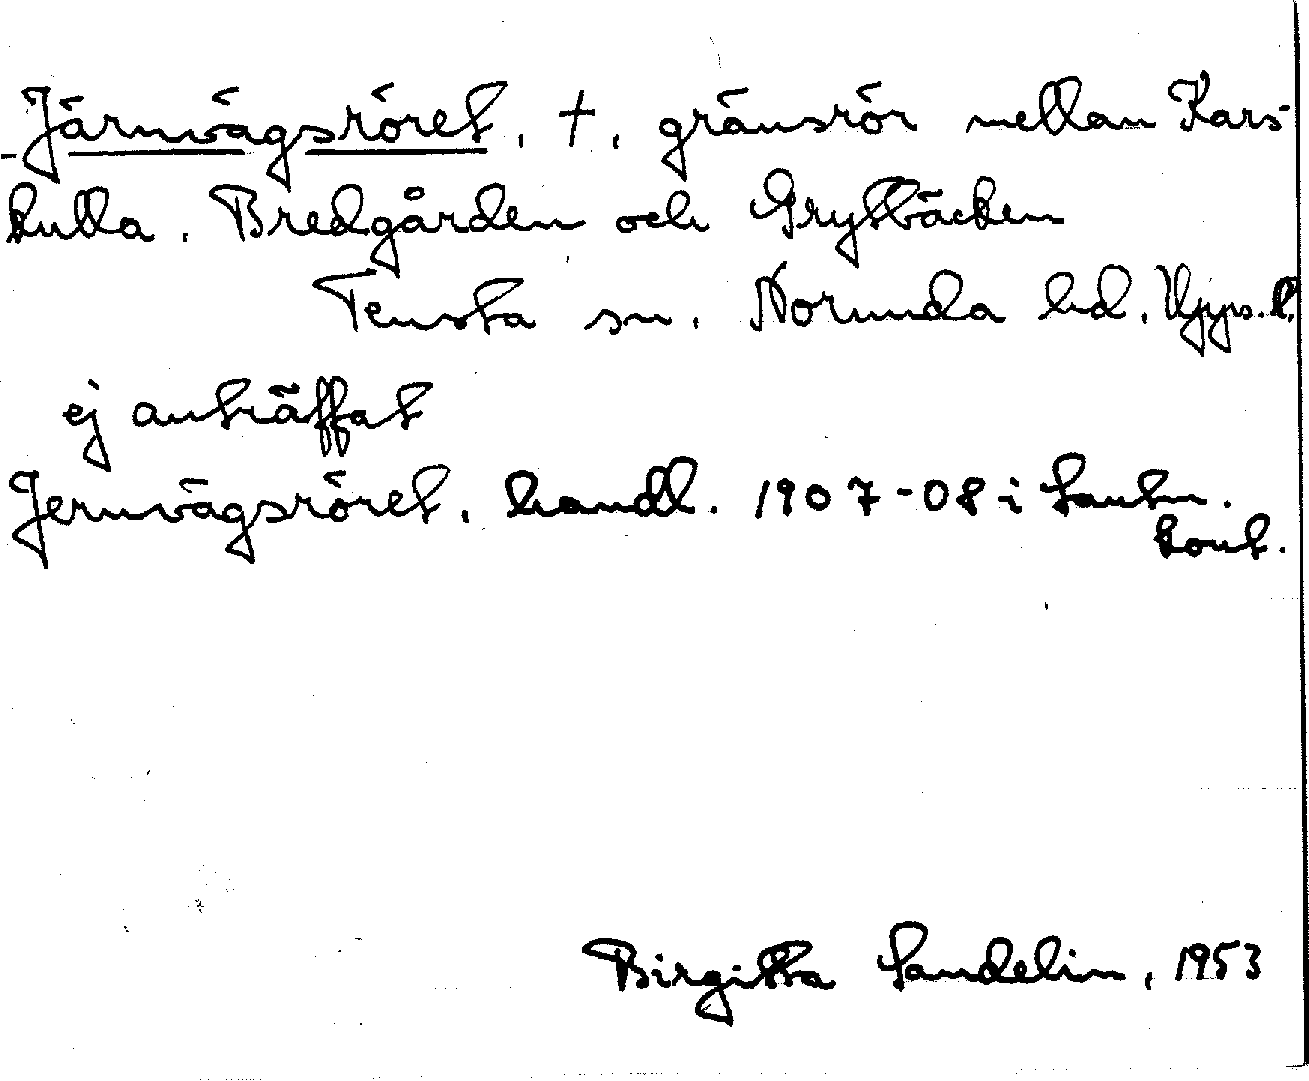 Järnvägsröret, †, gränsrör mellan Kars-
kulla, Bredgården och Gryttbäcken
Tensta sn, Norunda hd, Upps. l.
ej anträffat
Jernvägsröret, handl. 1907-08 i Lantm.
kont.
Birgitta Sandelin, 1953